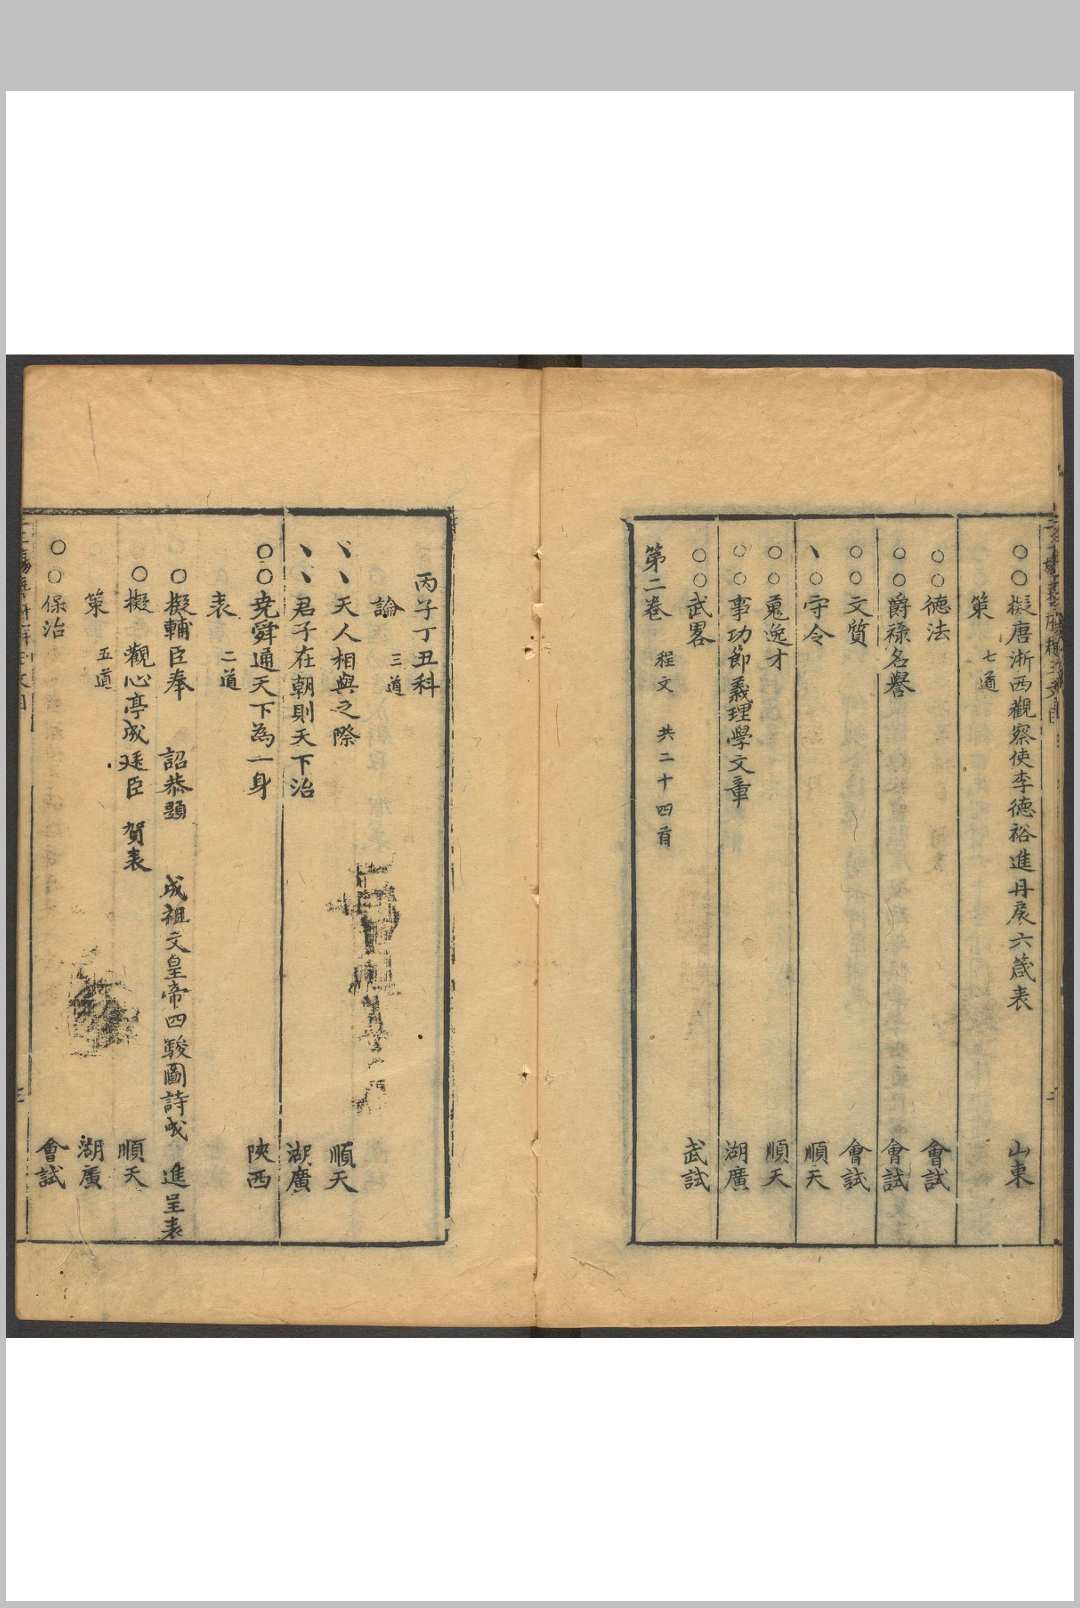 ○○擬唐浙西觀察使李德裕進丹扆六箴表 山東
策 七道
○○德法 會試
○○爵祿名譽 會試
○○文質 會試
丶○守令 順天
○○蒐逸才 順天
○○事功節義理學文章 湖廣
○○武畧 武試
第二卷 程文 共二十四首
丙子丁丑科
論 三道
丶丶天人相與之際 順天
丶丶君子在朝則天下治 湖廣
○○堯舜通天下為一身 陝西
表 二道
○擬輔臣奉 詔恭題 成祖文皇帝四駿圖詩成 進呈表
○擬 觀心亭成廷臣 賀表 順天
策 五道 湖廣
○○保治 會試